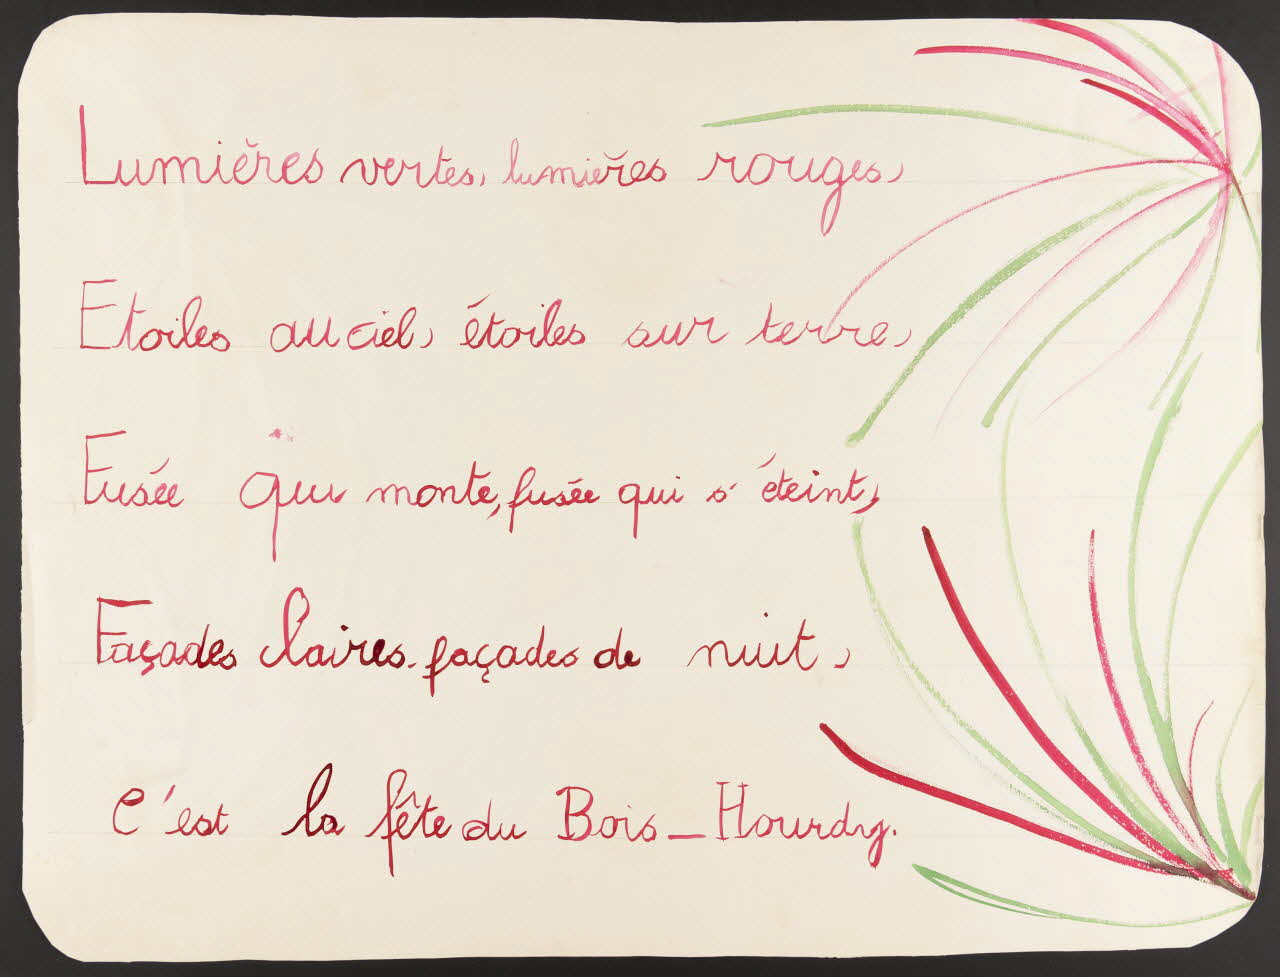 Lumières vertes, lumières rouges,
Etoiles au ciel, étoiles sur terre,
Fusée qui monte, fusée qui s'éteint,
Façades claires, façades de nuit,
C'est la fête du Bois-Hourdy.